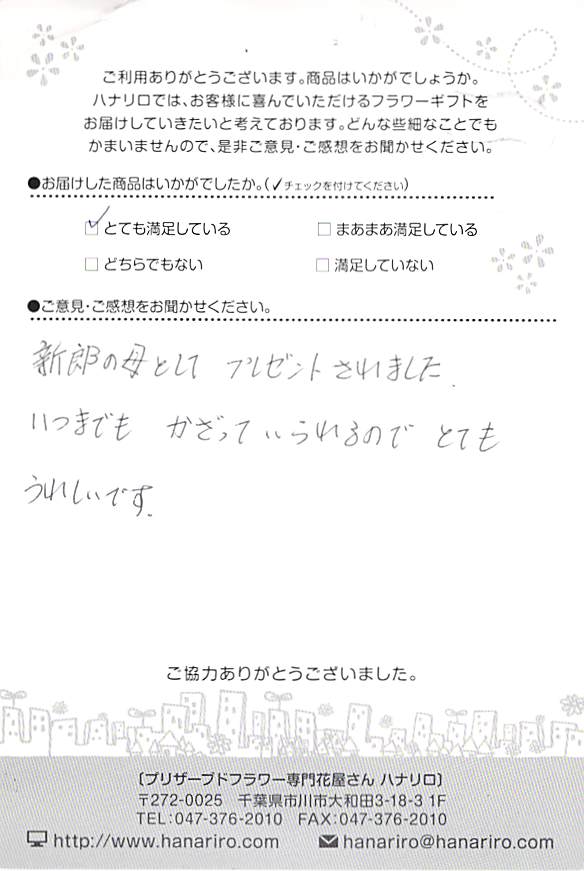 ご利用ありがとうございます。商品はいかがでしょうか。
ハナリロでは、お客様に喜んでいただけるフラワーギフトを
お届けしていきたいと考えております。どんな些細なことでも
かまいませんので、是非ご意見・ご感想をお聞かせください。
●お届けした商品はいかがでしたか。(✓チェックを付けてください)
☑とても満足している □まあまあ満足している
□どちらでもない □満足していない
●ご意見・ご感想をお聞かせください。
新郎の母として プレゼントされました.
いつまでも かざって いられるので とても
うれしいです.
ご協力ありがとうございました。
〔プリザーブドフラワー専門花屋さん ハナリロ〕
〒272-0025 千葉県市川市大和田3-18-3 1F
TEL:047-376-2010 FAX:047-376-2010
http://www.hanariro.com hanariro@hanariro.com